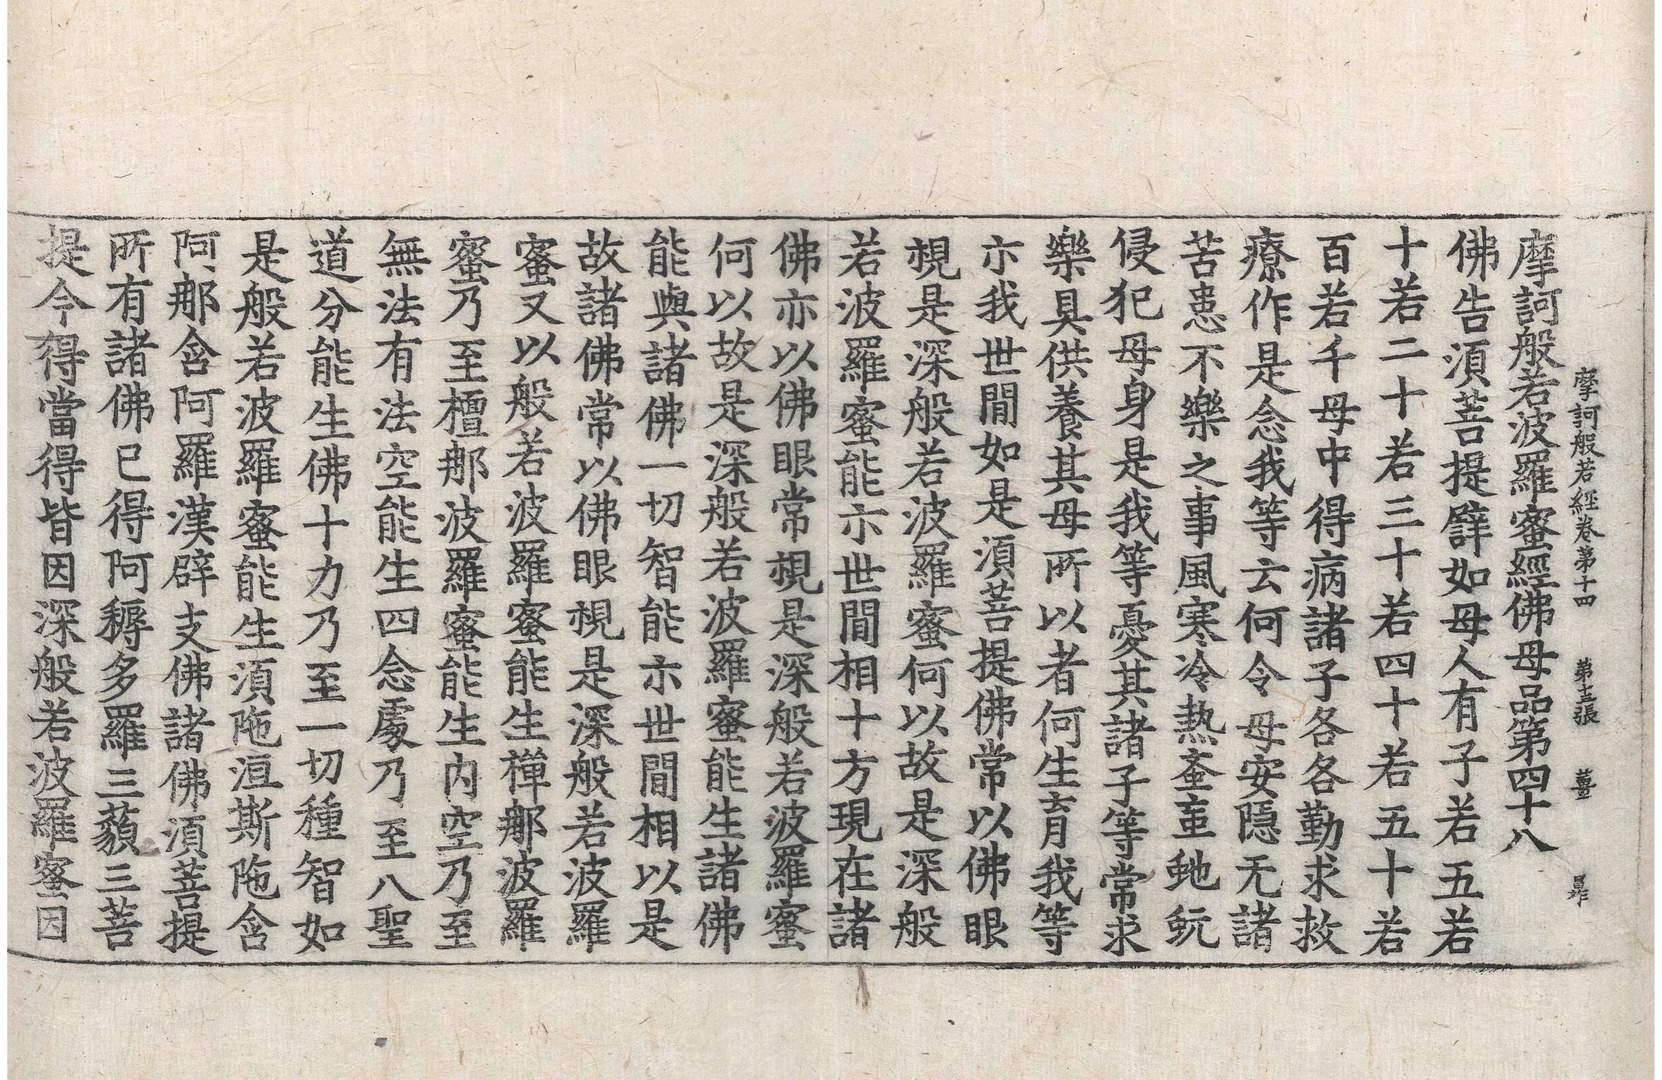 摩訶般若經卷第十四　第十三張　薑
摩訶般若波羅蜜經佛母品第四十八
佛告須菩提譬如母人有子若五若
十若二十若三十若四十若五十若
百若千母中得病諸子各各勤求救
療作是念我等云何令母安隱无諸
苦患不樂之事風寒冷熱蚉䖝虵蚖
侵犯母身是我等憂其諸子等常求
樂具供養其母所以者何生育我等
示我世間如是須菩提佛常以佛眼
視是深般若波羅蜜何以故是深般
若波羅蜜能示世間相十方現在諸
佛亦以佛眼常視是深般若波羅蜜
何以故是深般若波羅蜜能生諸佛
能與諸佛一切智能示世間相以是
故諸佛常以佛眼視是深般若波羅
蜜又以般若波羅蜜能生禪那波羅
蜜乃至檀那波羅蜜能生內空乃至
無法有法空能生四念處乃至八聖
道分能生佛十力乃至一切種智如
是般若波羅蜜能生須陁洹斯陁含
阿那含阿羅漢辟支佛諸佛須菩提
所有諸佛已得阿耨多羅三藐三菩
提今得當得皆因深般若波羅蜜因